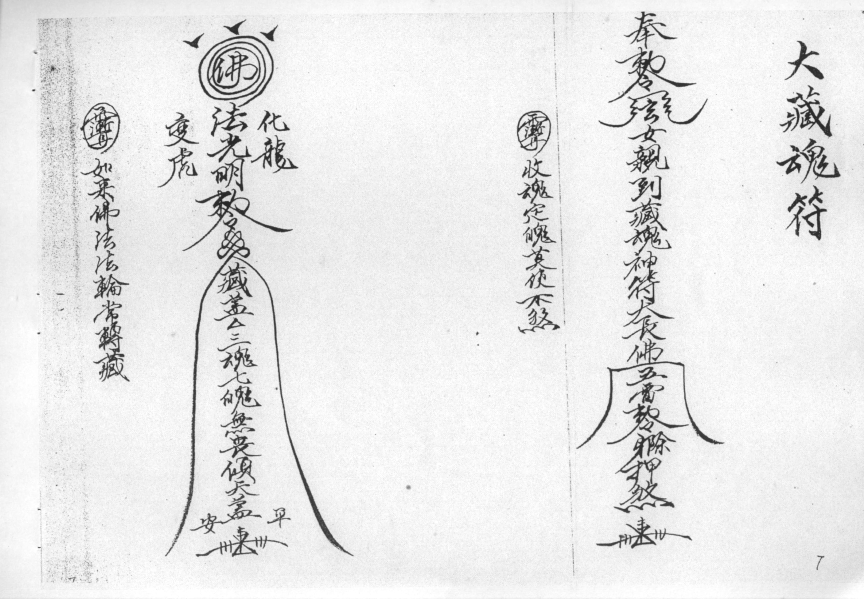 大藏魂符
奉敕令
女親到藏魂神符大長佛
五雷敕令
押煞
收魂定魄莫使不煞
佛
化龍
變虎
法光明敕令
藏蓋
三魂七魄無喪傾天蓋
早
安
如來佛法法輪常轉藏
7